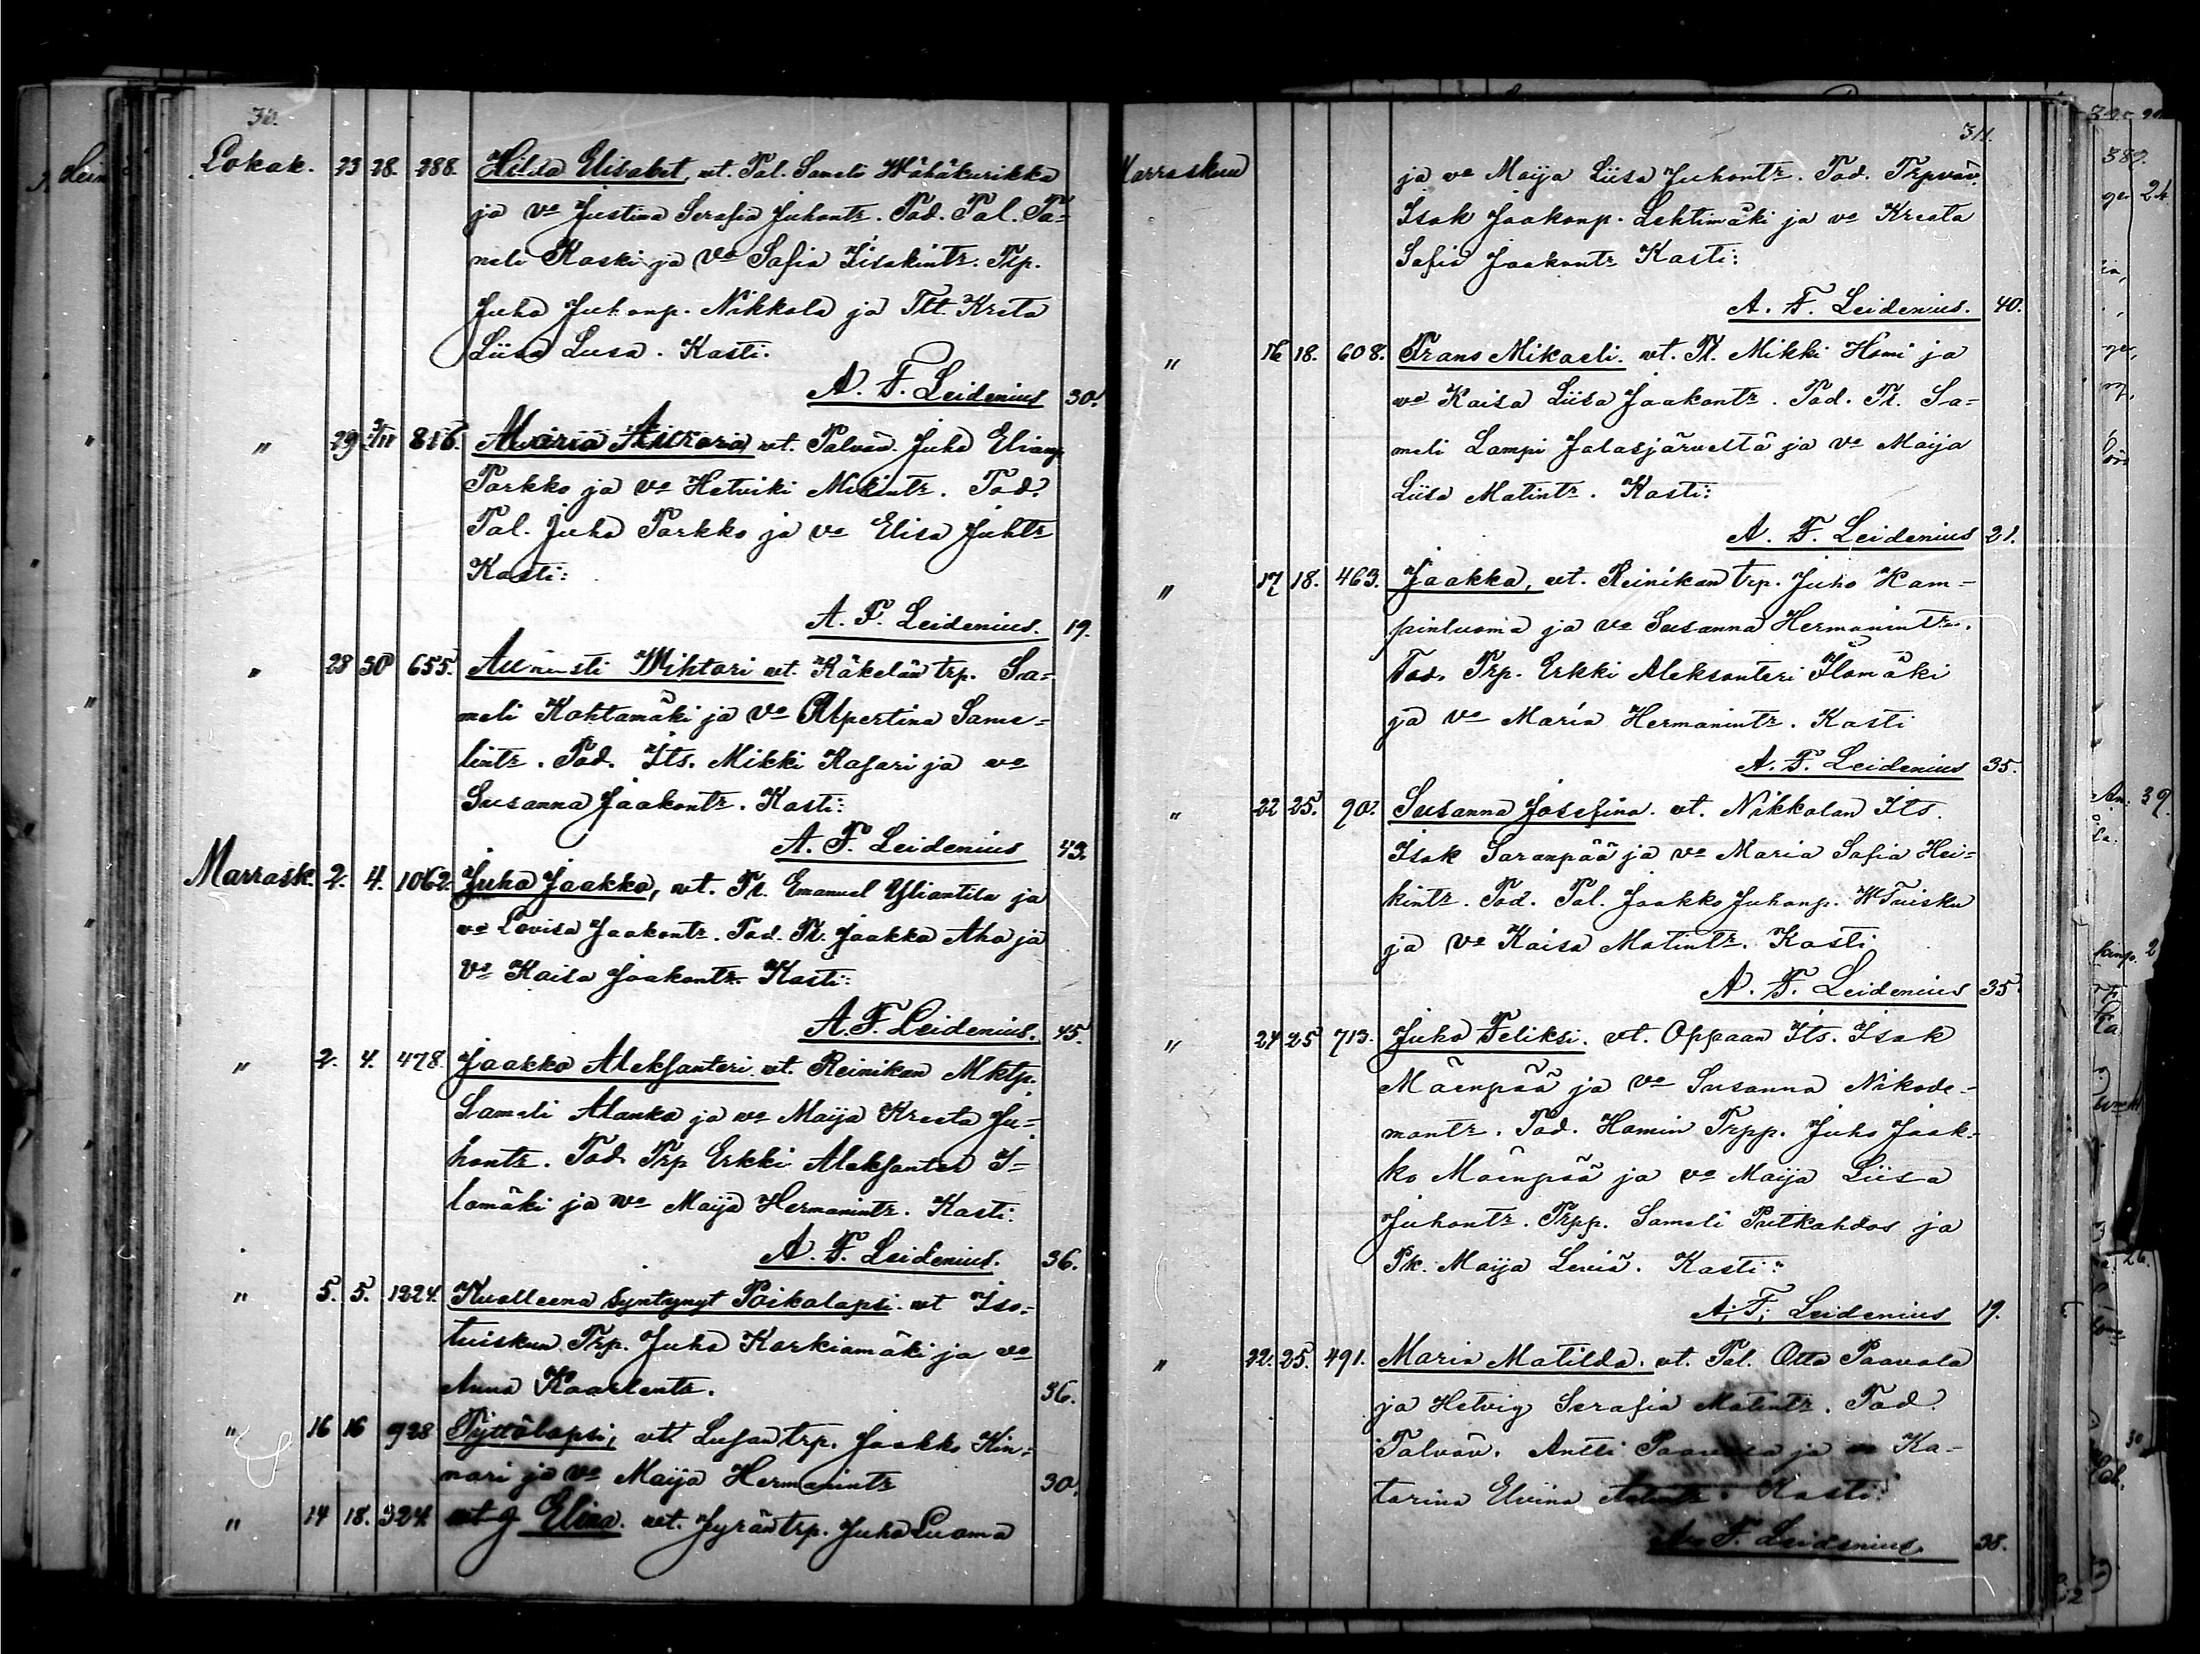 Lokak. 23 28. 288. Hilda Elisabet, vt. Pal. Sameli Wähäkurikka
ja vo Justina Serafia Juhontr. Tod. Pal. Ta-
neli Koski ja Vo Sofia Iisakintr. Trp.
Juha Juhonp. Nikkola ja Tlt. Kreta
Liisa Lusa. Kasti.
A. F. Leidenius 30.
" 29 816. Maria Aurora, vt. Palväv. Juha Elianp
Parkko ja vo Hetviki Mikintr. Tod.
Pal. Juha Parkko ja vo Elisa Juhtr
Kasti:
A. F. Leidenius. 19.
" 28 30 655. Wihtori vt. Käkelän trp. Sa-
meli Kohtamäki ja Vo Alpertina Same-
lintr. Tod. Its. Mikki Rasari ja vo
Susanna Jaakontr. Kasti:
A. F. Leidenius 43.
Marrask. 2. 4. 1062. Juha Jaakko, vt. Tr. Emanuel Yliantila ja
vo Lovisa Jaakontr. Tod. Tr. Jaakko Aho ja
Vo Kaisa Jaakontr. Kasti:
A. F. Leidenius. 45.
" 2. 4. 478. Jaakko Aleksanteri. vt. Reinikan Mktp.
Sameli Alanko ja vo Maija Kreeta Ju-
hontr. Tod. Trp Erkki Aleksanteri I-
lomäki ja vo Maija Hermanintr. Kasti:
A. F. Leidenius. 36.
" 5. 5. 1224. Kuolleena syntynyt Poikalapsi. vt Iso-
tuiskun Trp. Juha Korkiamäki ja vo
Anna Kaarlentr. 36.
" 16 16 928 Tyttölapsi, vt. Lusan trp. Jaakko Kin-
nari ja vo Maija Hermanintr 30.
" 14 18. 324. Elina. vt. Jyrän trp. Juha Luoma
311.
Marraskuu ja vo Maija Liisa Juhontr. Tod. Trpväv.
Isak Jaakonp. Lehtimäki ja vo Kreeta
Sofia Jaakontr Kasti:
A. F. Leidenius. 40.
" 16 18. 608. Frans Mikaeli. vt. Tr. Mikki Homi ja
vo Kaisa Liisa Jaakontr. Tod. Tr. Sa-
meli Lampi Jalasjärveltä ja Vo Maija
Liisa Matintr. Kasti:
A. F. Leidenius 21.
" 17 18. 463. Jaakko, vt. Reinikan trp. Juho Kam-
pinluoma ja vo Susanna Hermanintr.
Tod. Trp. Erkki Aleksanteri Ilomäki
ja vo Maria Hermanintr. Kasti
A. F. Leidenius 35.
" 22 25. 90. Susanna Josefina. vt. Nikkolan Its.
Isak Saranpää ja vo Maria Sofia Hei-
kintr. Tod. Pal. Jaakko Juhonp. WTuisku
ja vo Kaisa Matintr. Kasti
A. F. Leidenius 35.
" 24 25 713. Juho Feliksi. vt. Oppaan Its. Isak
Mäenpää ja vo Susanna Nikode-
montr. Tod. Homin Trpp. Juho Jaak-
ko Mäenpää ja vo Maija Liisa
Juhontr. Trpp. Sameli Putkahdos ja
Pk. Maija Kasti:
A. F. Leidenius 19.
" 22. 25. 491. Maria Matilda. vt. Pal. Otto Paavola
ja Hetvig Serafia Matintr. Tod.
Palväv. Antti Paavola ja vo Ka-
tarina Elvina Kasti:
A. F. Leidenius. 38.